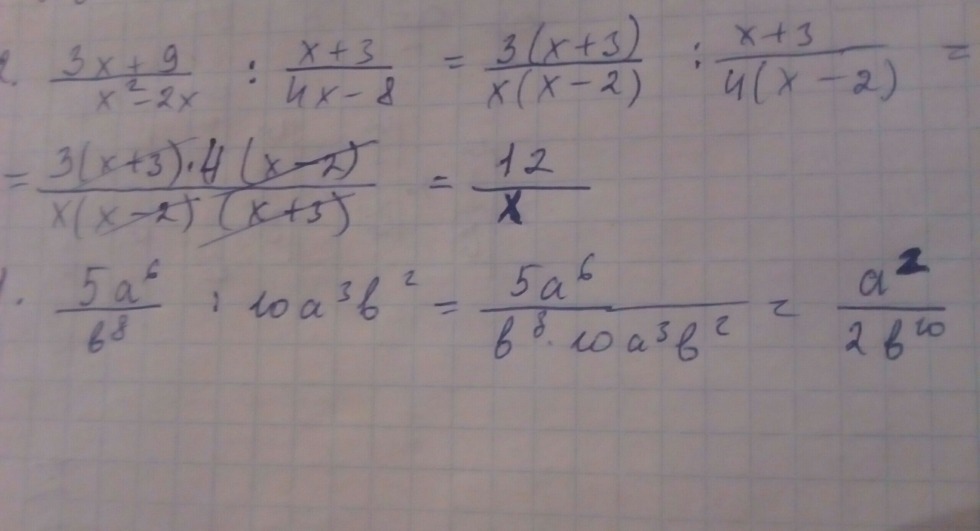 2. (3x + 9)/(x² - 2x) : (x + 3)/(4x - 8) = 3(x + 3)/(x(x - 2)) : (x + 3)/(4(x - 2)) =
= 3(x + 3) · 4(x - 2)/(x(x - 2)(x + 3)) = 12/x
5a⁶/b⁸ : 10a³b² = 5a⁶/(b⁸ · 10a³b²) = a²/(2b¹⁰)